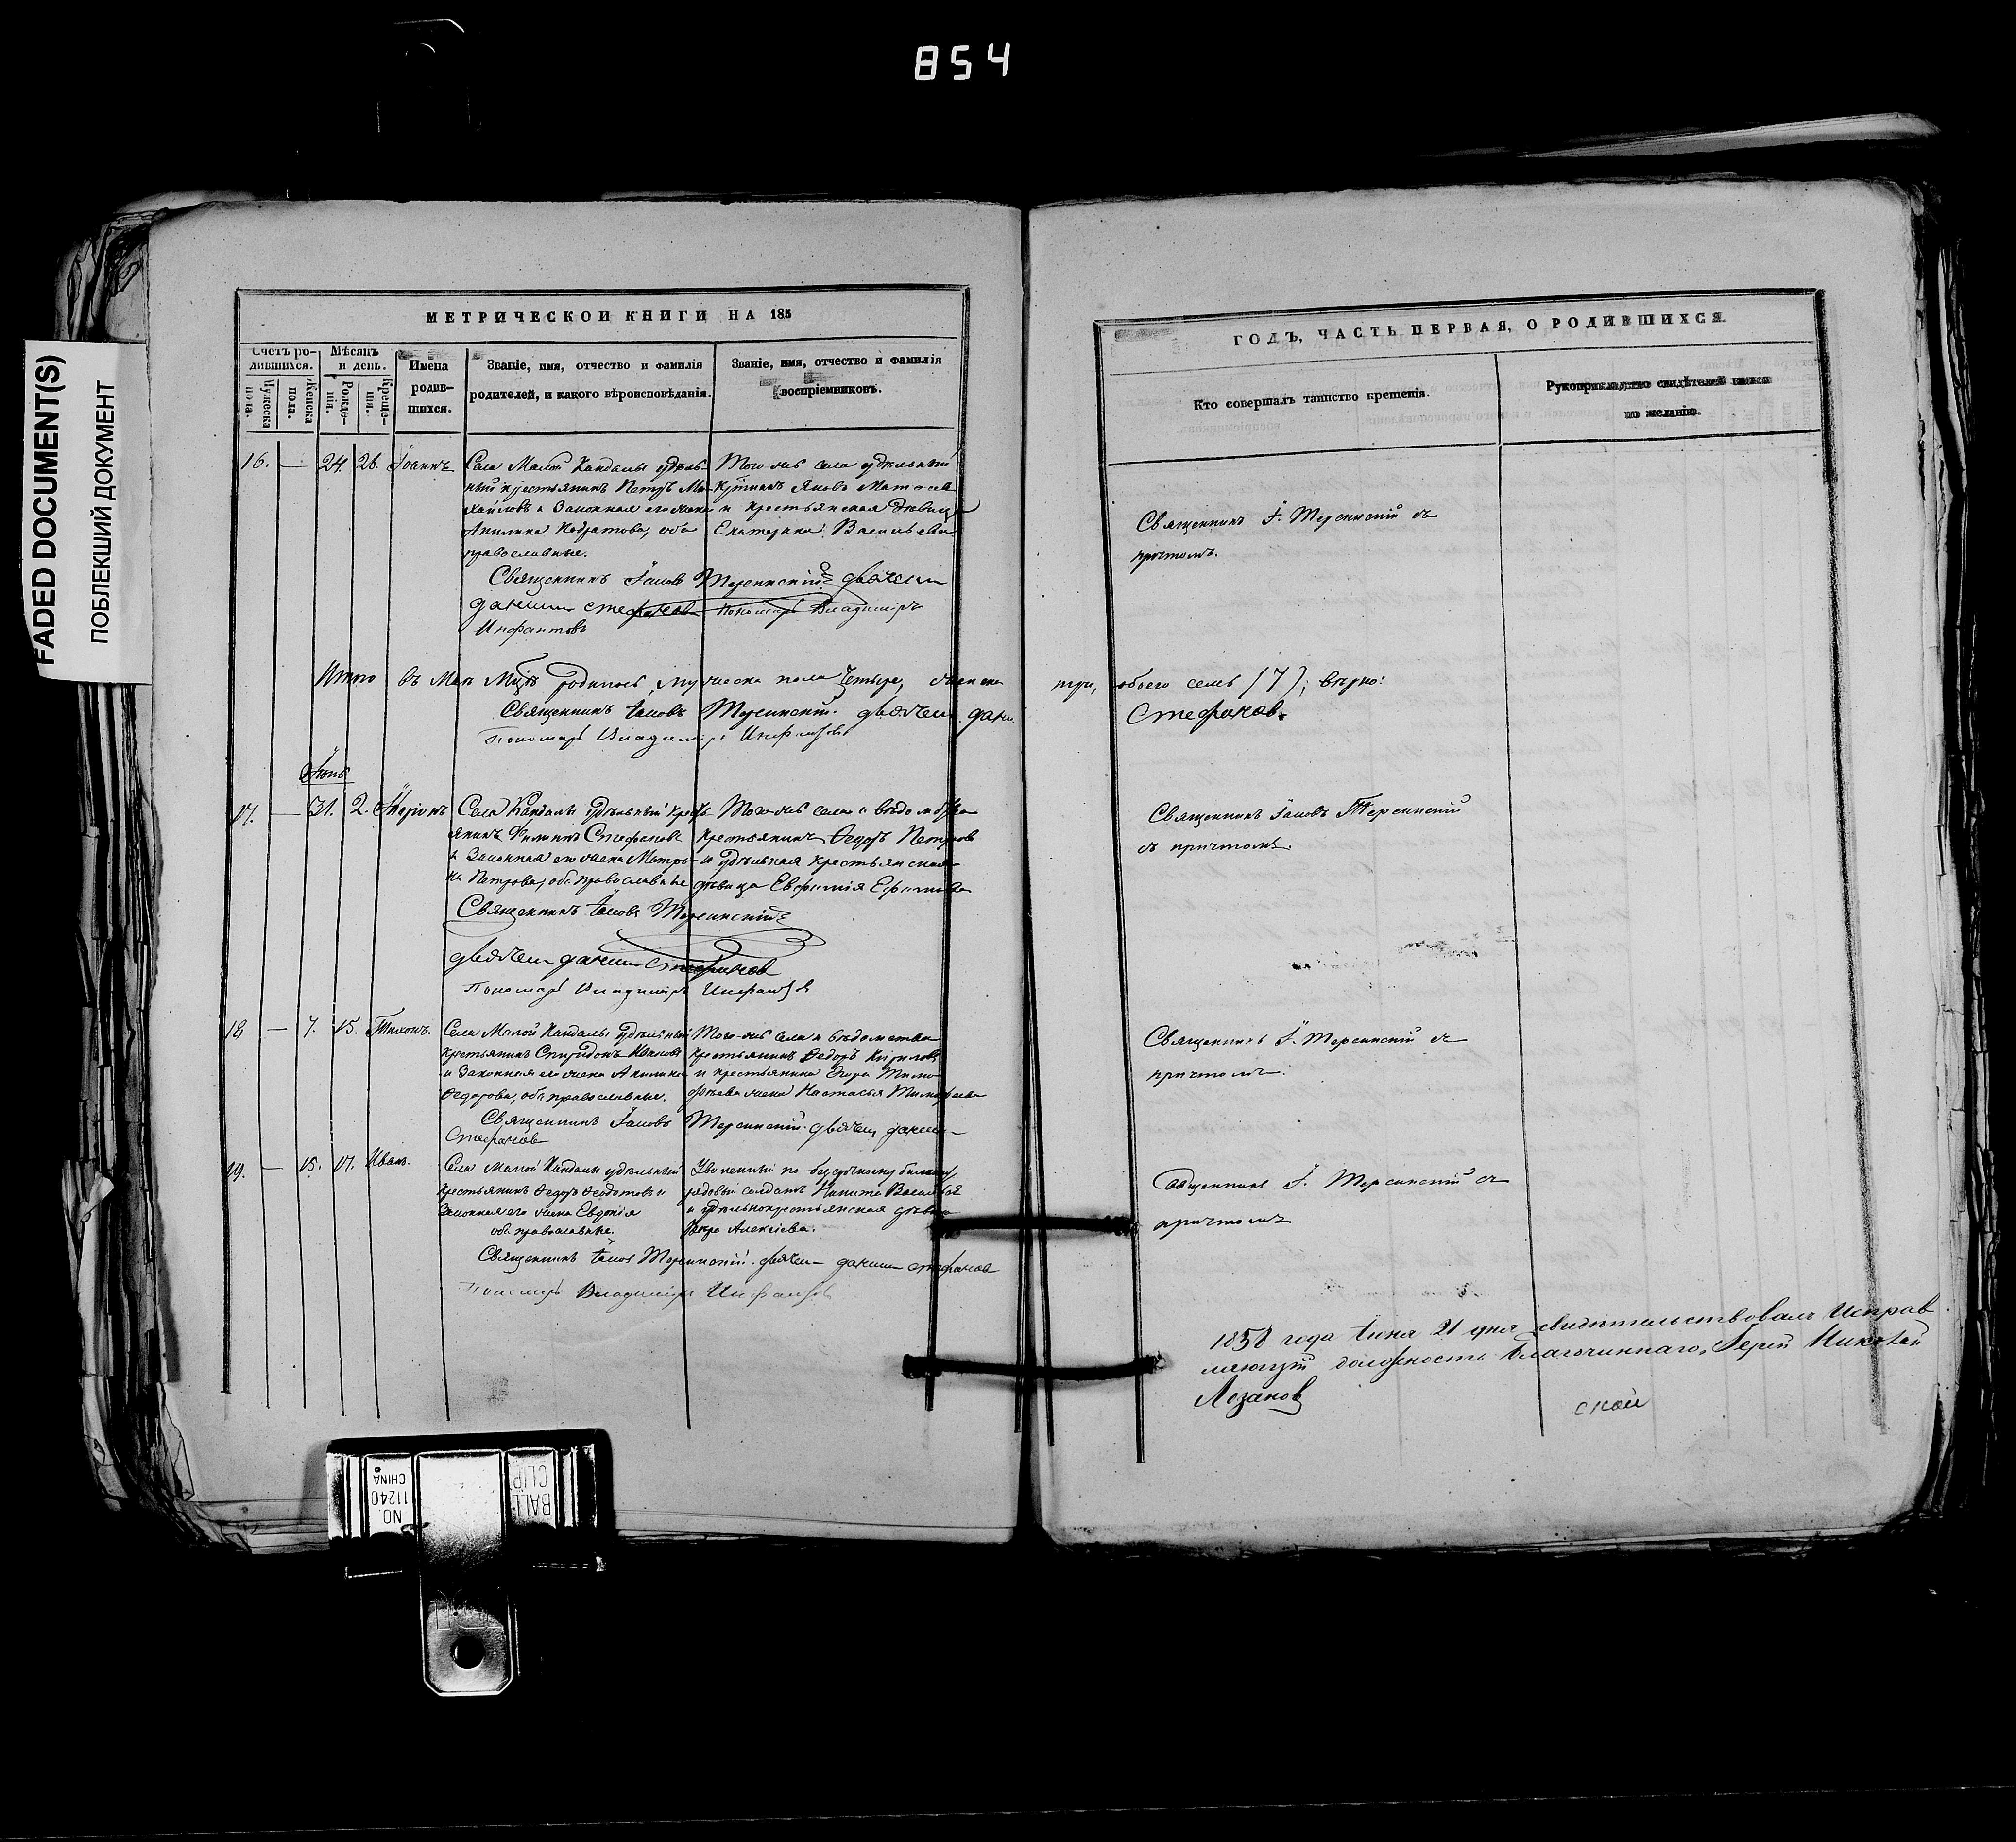 854
FADED DOCUMENT(S)
ПОБЛЕКШИЙ ДОКУМЕНТ
МЕТРИЧЕСКОИ КНИГИ НА 185
Счетъ ро-
дившихся.
Мужеска
пола.
Женска
пола.
Мѣсяцъ
и день.
Рожде-
нія.
Креще-
нія.
Имена
родив-
шихся.
Званіе, имя, отчество и фамилія
родителей, и какого вѣроисповѣданія.
Званіе, имя, отчество и фамилія
воспріемниковъ.
16. — 24. 26. Іоаннъ
Села Малой Кандалы удѣль-
ный крестьянинъ Петръ Ми-
хайловъ и Законная его жена
Акилина, оба
православные.
Того же села удѣльный
Яковъ
и крестьянская дѣвица
Екатерина Васильева
Священникъ Іаковъ Терсинскій дьячекъ
Стефанов Пономарь Владиміръ
Инфантовъ
Итого въ Маѣ родилось мужеска пола четыре, женска
Священникъ Іаковъ Терсинскій. дьячек
Пономарь Владиміръ Инфантов
Іюнь
17. — 31. 2.
Села Кандалы удѣльный крест-
янинъ Филипъ Стефановъ
и Законная его жена Матро-
на Петрова, оба православные
Того же села и вѣдомства
крестьянинъ Ѳедоръ Петровъ
и удѣльная крестьянская
дѣвица Евфимія Ефимова
Священникъ Іаковъ Терсинскій
дьячек Стефанов
Пономарь Владиміръ Инфантов
18 — 7. 15. Тихонъ.
Села Малой Кандалы удѣльный
крестьянинъ Спиридонъ Ивановъ
и Законная его жена Акилина
Ѳедорова, оба православные.
Того же села и вѣдомства
крестьянинъ Ѳедоръ Кириловъ
и крестьянина Егора Тимо-
фѣева жена Настасья Тимофеева
Священникъ Іаковъ Терсинскій дьячек
Стефанов
19. — 15. 17. Иванъ.
Села Малой Кандалы удѣльный
крестьянинъ Ѳедоръ Ѳедотовъ и
Законная его жена Евдокія
оба православные.
Уволенный по безсрочному билету
рядовый солдатъ Никита
и удѣльнокрестьянская дѣвица
Вера Алексіева.
Священникъ Іаковъ Терсинскій. дьячек Стефанов
Пономарь Владиміръ Инфантов
ГОДЪ, ЧАСТЬ ПЕРВАЯ, О РОДИВШИХСЯ.
Кто совершалъ таинство крещенія.
Рукоприкладство свидѣтелей записи
по желанію.
Священникъ І. Терсинскій съ
причтомъ.
три, обоего семь (7); вѣрно:
Стефанов.
Священникъ Іаковъ Терсинскій
съ причтомъ.
Священникъ І. Терсинскій съ
причтомъ.
Священникъ І. Терсинскій съ
причтомъ
1858 года Іюня 21 дня свидѣтельствовалъ Исправ
ляющій должность благочиннаго, Іерей Николай
Лозанов
ской
NO.
11240
CHINA
BALL
CLIP